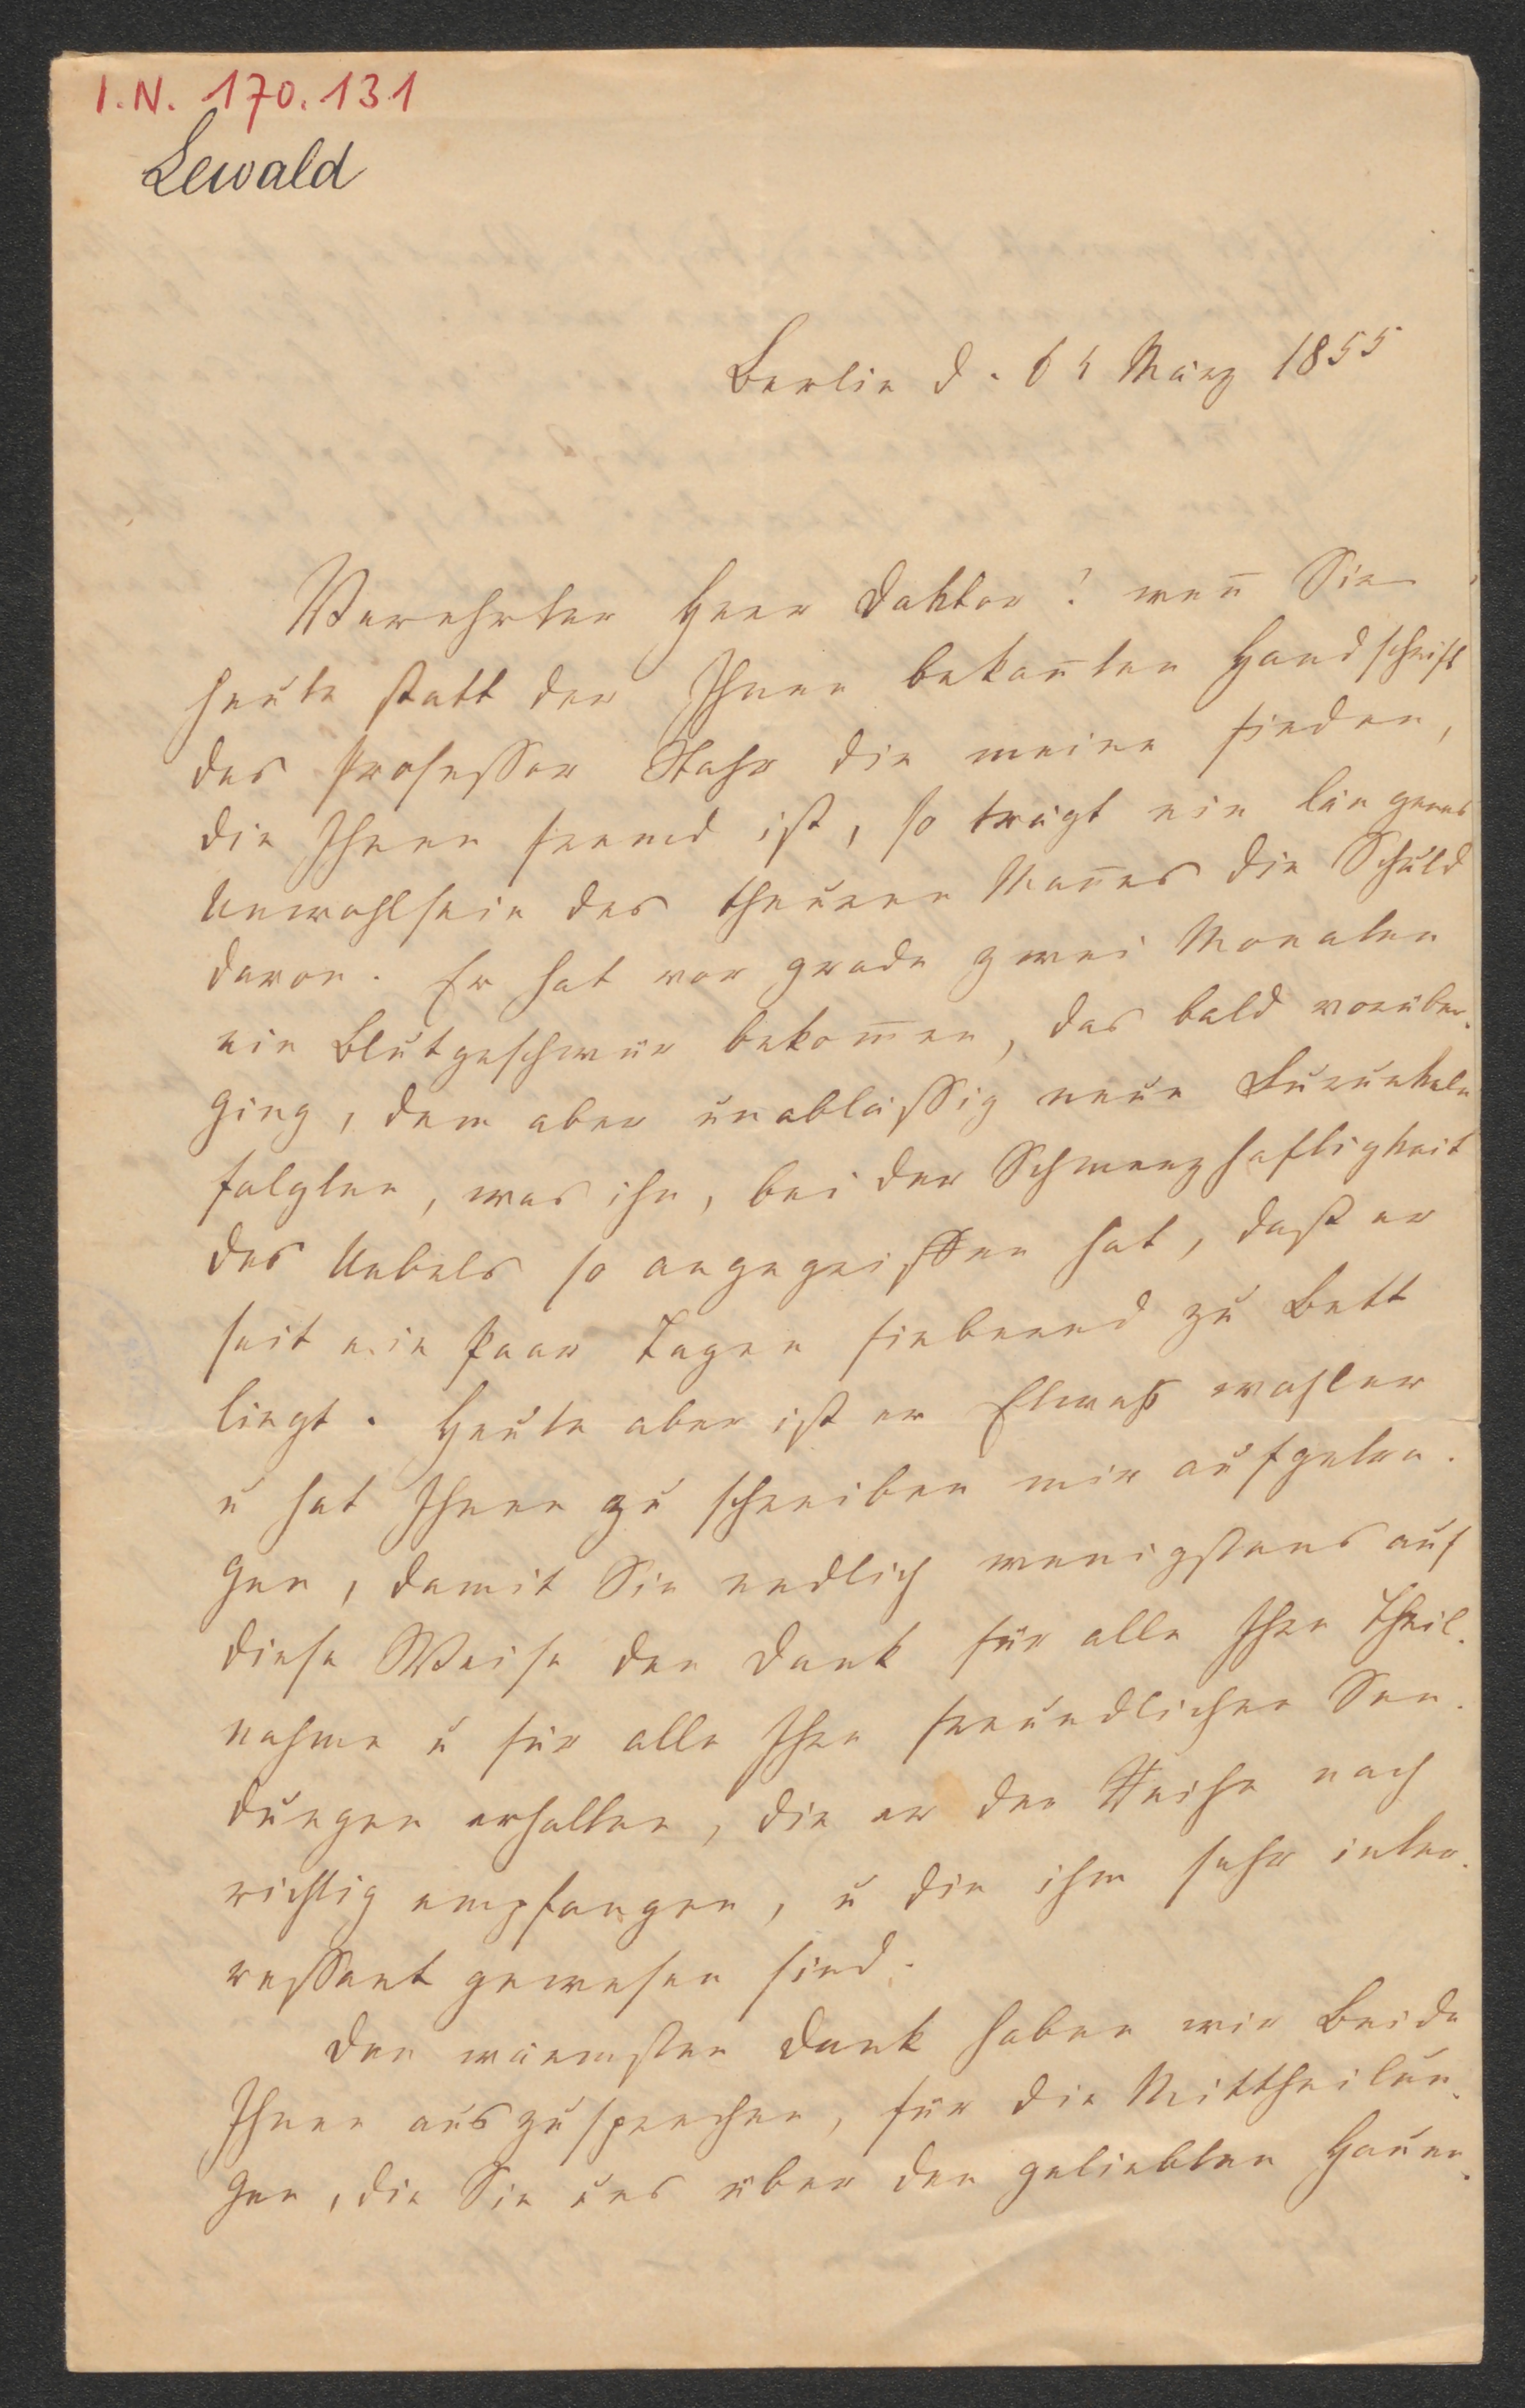 I.N. 170.131
Lewald
Berlin d. 6 t März 1855
Verehrter Herr Doktor! wen̅ Sie
heute statt der Ihnen bekan̅ten Handschrift
des Professor Stahr die meine finden,
die Ihnen fremd ist, so trägt ein längeres
Unwohlsein des theuren Man̅es die Schuld
davon. Er hat vor grade zwei Monaten
ein Blutgeschwür bekom̅en, das bald vorüber-
ging, dem aber unabläßig neue Furunkeln
folgten, was ihn, bei der Schmerzhaftigkeit
des Uebels so angegriffen hat, daß er
seit ein Paar Tagen fiebernd zu Bett
liegt. Heute aber ist er Etwas wohler
u hat Ihnen zu schreiben mir aufgetra-
gen, damit Sie endlich wenigstens auf
diese Weise den Dank für alle Ihre Theil-
nahme u für alle Ihre freundlichen Sen-
dungen erhalten, die er der Reihe nach
richtig empfangen, u die ihm sehr inte-
ressant gewesen sind.
Den wärmsten Dank haben wir Beide
Ihnen auszusprechen, für die Mittheilun-
gen, die Sie uns über den geliebten